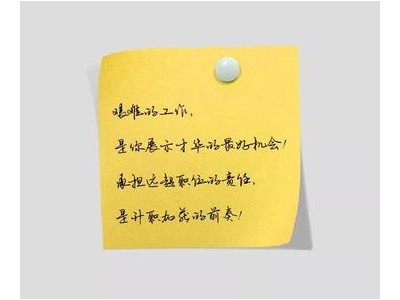 艰难的工作,
是你展示才华的最好机会!
承担远超职位的责任,
是升职加薪的前奏!